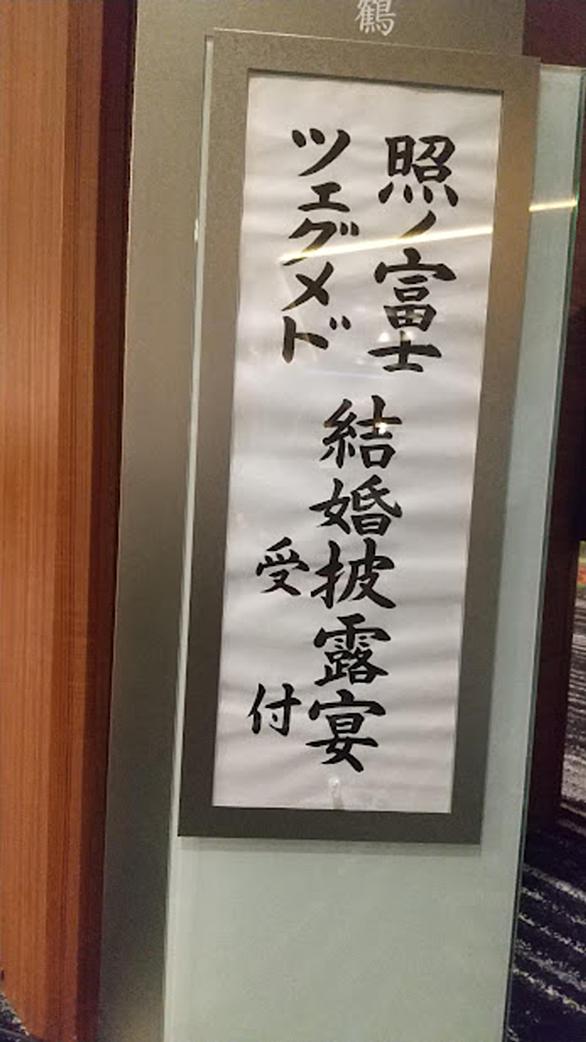 鶴
照ノ富士
ツェグメド
結婚披露宴
受付